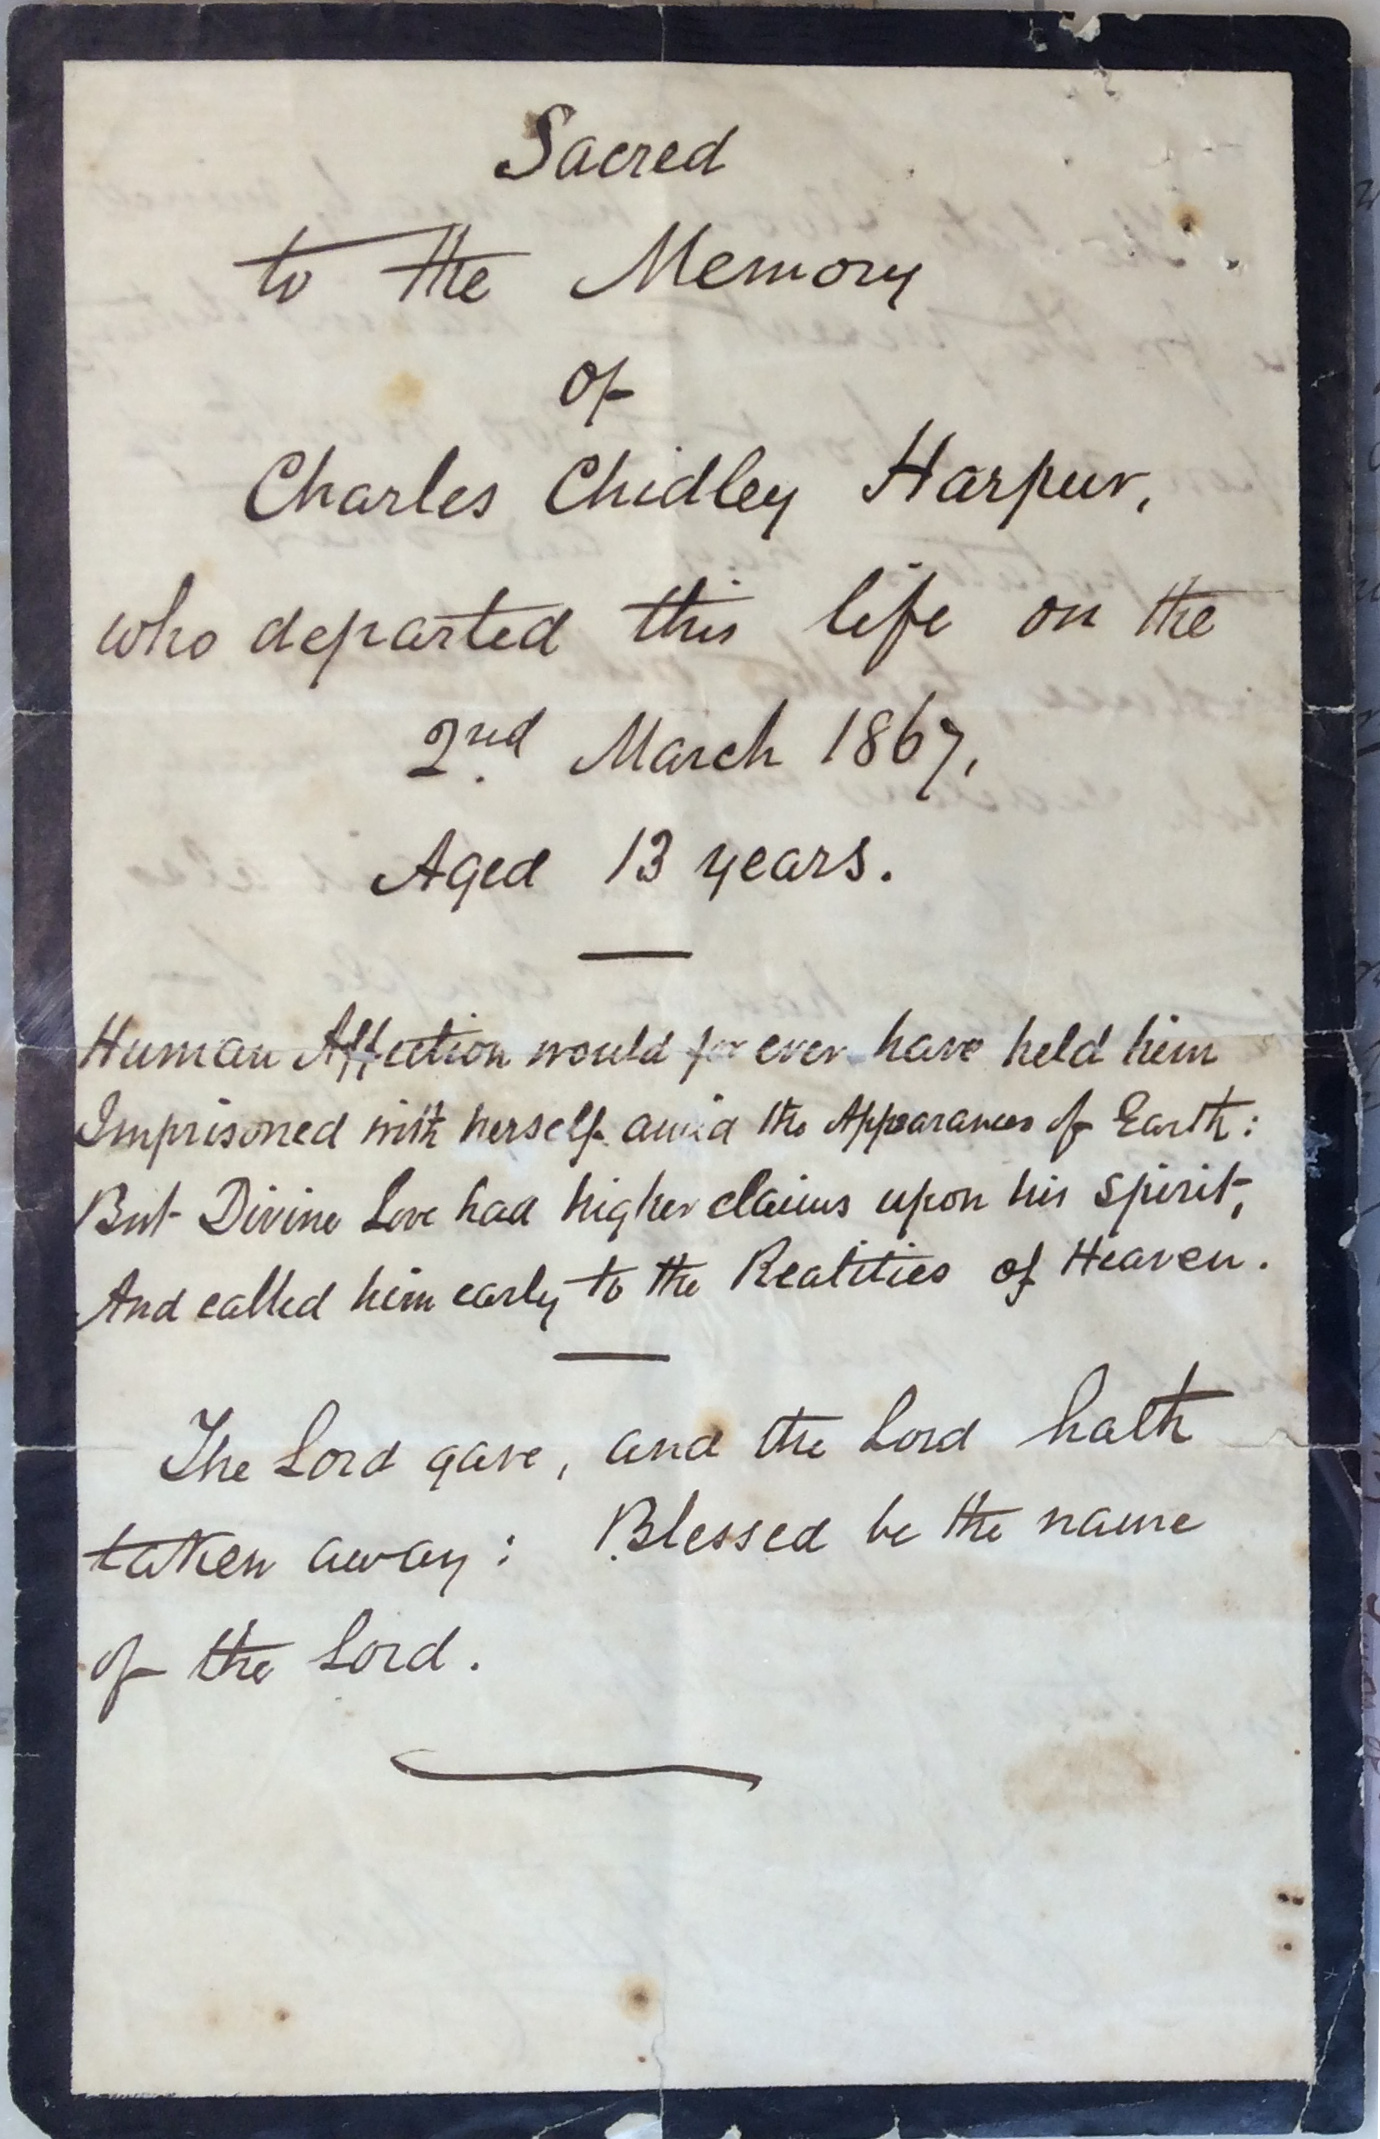 Sacred
to the Memory
of
Charles Chidley Harpur,
who departed this life on the
2nd March 1867,
Aged 13 years.
Human Affection would for ever have held him
Imprisoned with herself amid the Appearances of Earth:
But Divine Love had higher claims upon his spirit,
And called him early to the Realities of Heaven.
The Lord gave, and the Lord hath
taken away: Blessed be the name
of the Lord.